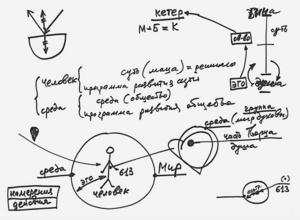 кетер
М+Б = К
Бина
суть
св-во
эго
душа
человек { суть (маца) = решимо
программа развития сути
среда { среда (общество)
программа развития общества
группа
среда (мир духовный)
часть Творца
душа
среда
эго
613
человек
Мир
намерения
действия
(•)
613